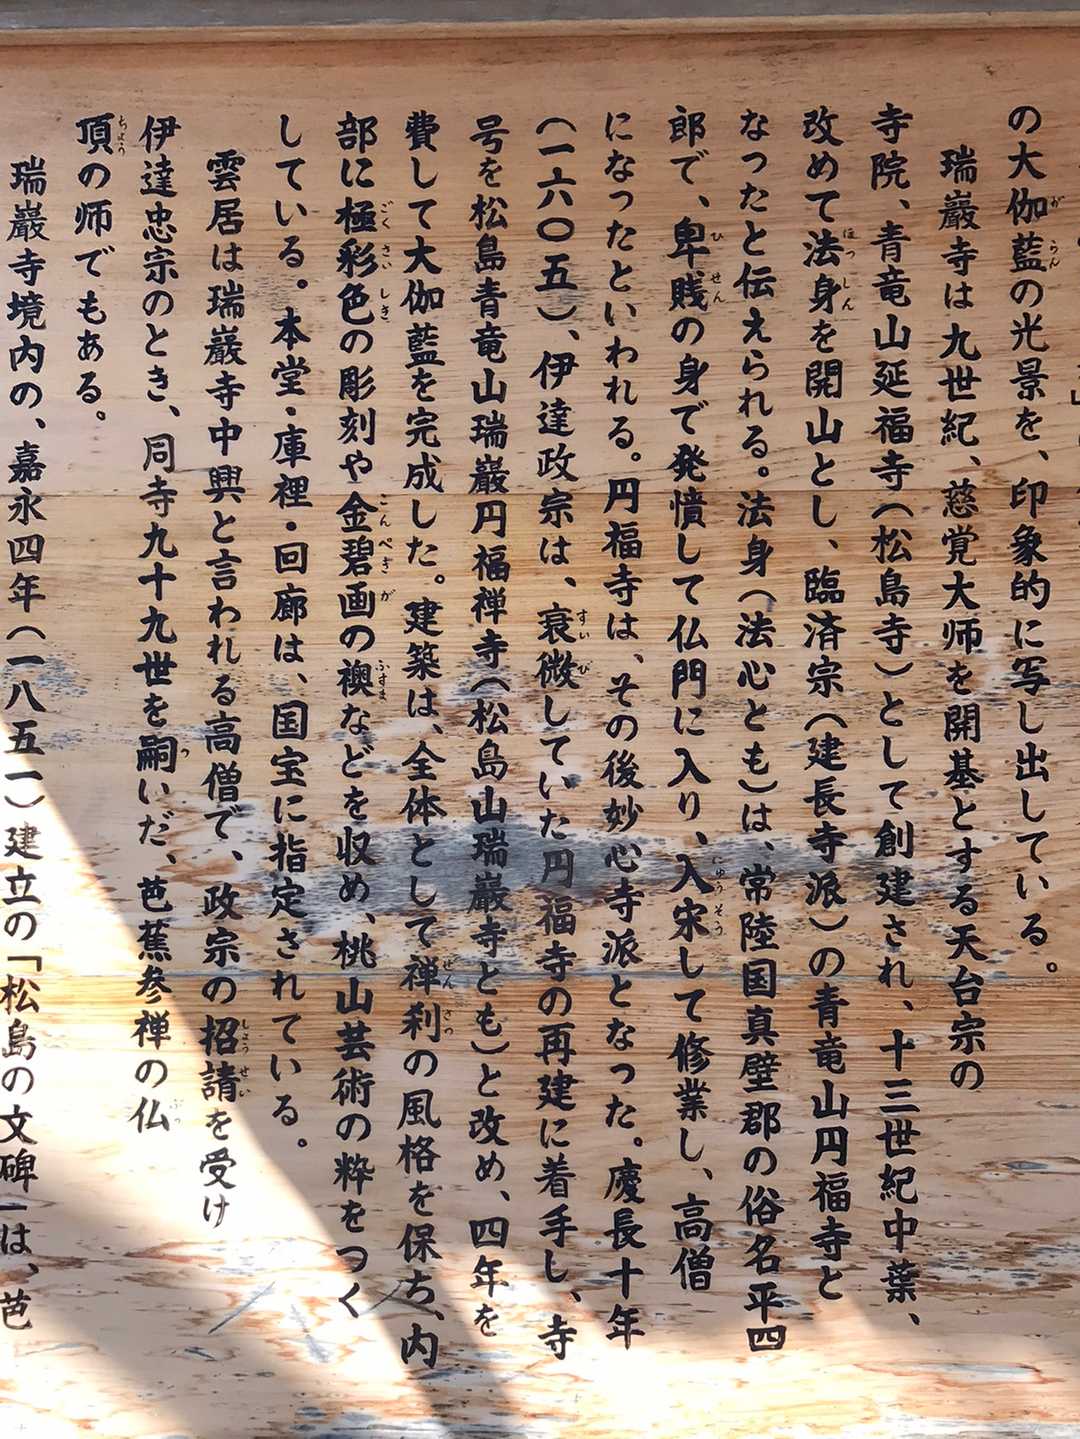 の大伽藍の光景を、印象的に写し出している。
瑞巌寺は九世紀、慈覚大師を開基とする天台宗の
寺院、青竜山延福寺(松島寺)として創建され、十三世紀中葉、
改めて法身を開山とし、臨済宗(建長寺派)の青竜山円福寺と
なったと伝えられる。法身(法心とも)は、常陸国真壁郡の俗名平四
郎で、卑賤の身で発憤して仏門に入り、入宋して修業し、高僧
になったといわれる。円福寺は、その後妙心寺派となった。慶長十年
(一六〇五)、伊達政宗は、衰微していた円福寺の再建に着手し、寺
号を松島青竜山瑞巌円福禅寺(松島山瑞巌寺とも)と改め、四年を
費して大伽藍を完成した。建築は、全体として禅刹の風格を保ち、内
部に極彩色の彫刻や金碧画の襖などを収め、桃山芸術の粋をつく
している。本堂・庫裡・回廊は、国宝に指定されている。
雲居は瑞巌寺中興と言われる高僧で、政宗の招請を受け
伊達忠宗のとき、同寺九十九世を嗣いだ、芭蕉参禅の仏
頂の師でもある。
瑞巌寺境内の、嘉永四年(一八五一)建立の「松島の文碑」は、芭